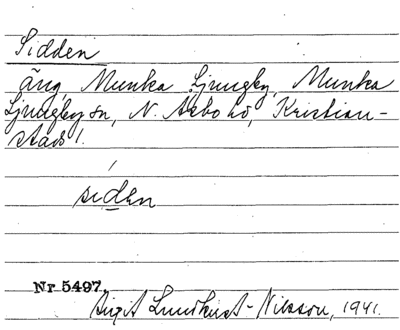 Sidden
äng, Munka Ljungby, Munka
Ljungby sn, N. Åsbo hd, Kristian-
stads l.
siden
Nr 5497.
Birgit Lundkvist-Nilsson, 1941.